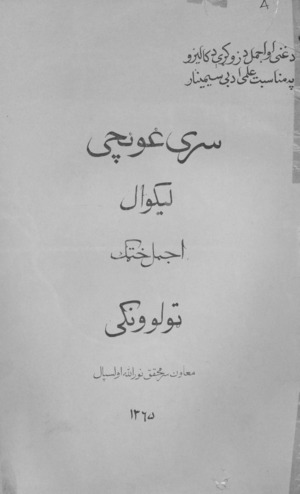 د غني او اجمل د زوکړې د کالیزو
په مناسبت علمي ادبي سیمینار
سرې غونچې
لیکوال
اجمل خټک
ټولوونکی
معاون سرمحقق نورالله اولسپال
۱۳۶۵